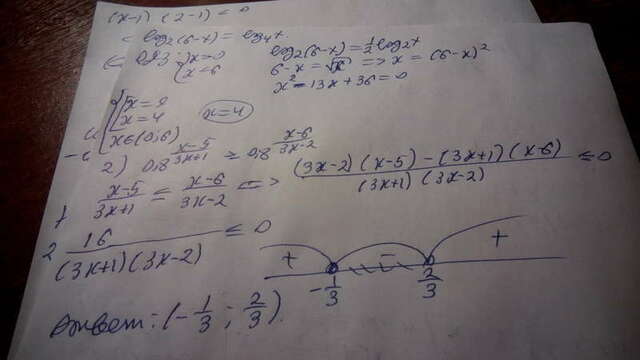 (x-1) (2-1) ≤ 0
log₂(6-x) = log₄x
ОДЗ: { x>0
x=6
log₂(6-x) = ½ log₂x
6-x = √x => x = (6-x)²
x² - 13x + 36 = 0
{ x=9
x=4
x∈(0;6)
x=4
2) 0,8^{\frac{x-5}{3x+1}} ≥ 0,8^{\frac{x-6}{3x-2}}
\frac{x-5}{3x+1} ≤ \frac{x-6}{3x-2} => \frac{(3x-2)(x-5) - (3x+1)(x-6)}{(3x+1)(3x-2)} ≤ 0
\frac{16}{(3x+1)(3x-2)} ≤ 0
+ - +
-\frac{1}{3} \frac{2}{3}
Ответ: (-\frac{1}{3}; \frac{2}{3}).